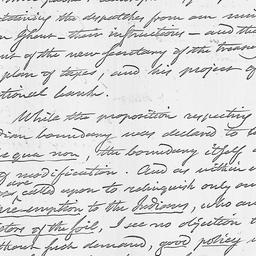 taining the despatches from our mini
Ghent - their instructions - and the
of the new Secretary of the treasu
plan of taxes, and his project of
tional bank.
While the proposition respecting
dian boundary was declared to be
qua non, the boundary itself
of modification. And as within
are called upon to relinquish only our
pre-emption to the Indians, who are
of the soil, I see no objection to
such demand, good policy